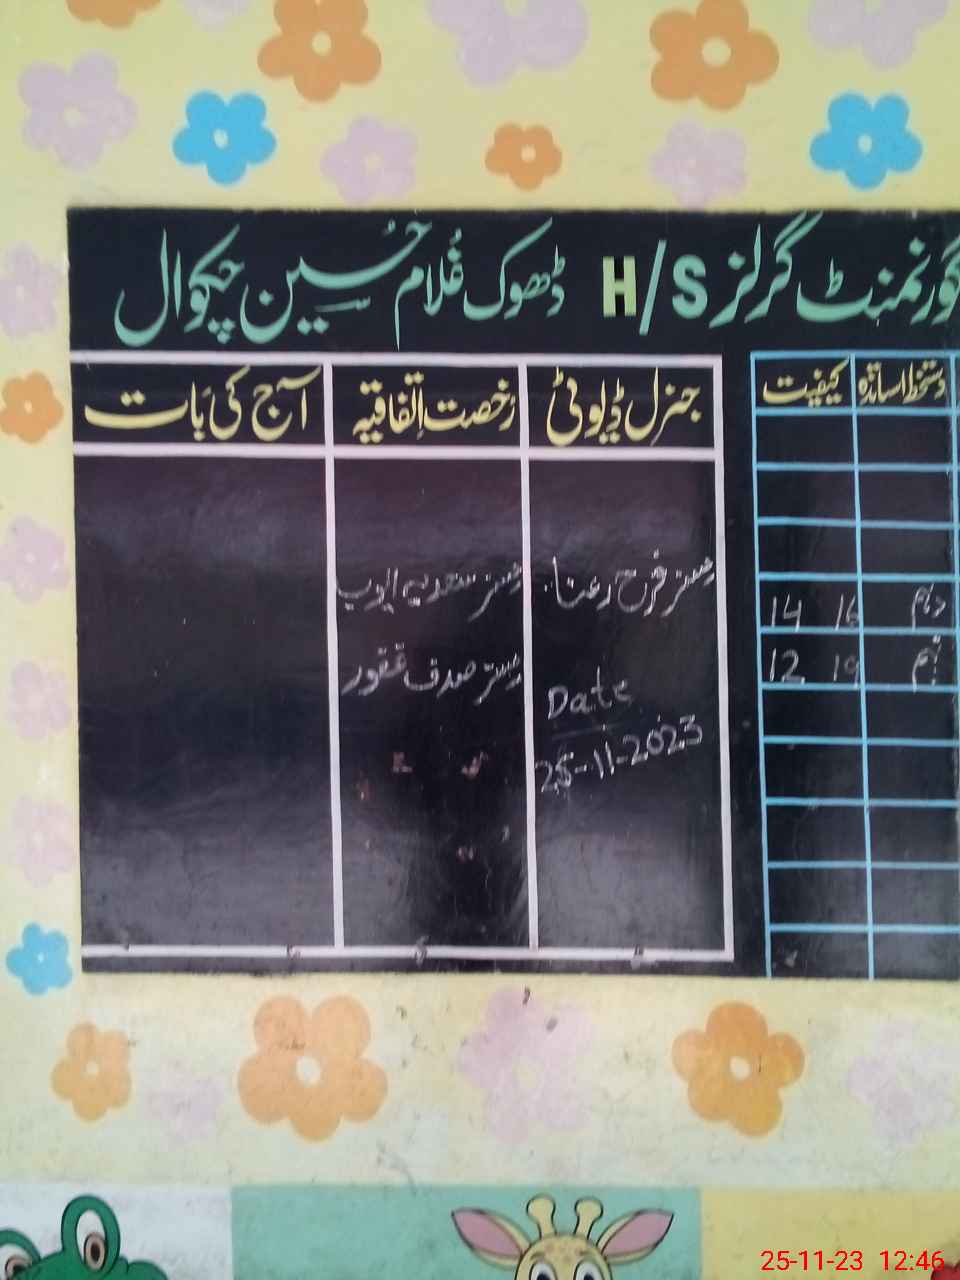 گورنمنٹ گرلز H/S ڈھوک غلام حسین چکوال
دستخط اساتذہ
کیفیت
دہم 16 14
نہم 19 12
جنرل ڈیوٹی
مسز فرح رعنا
Date
25-11-2023
رخصت اتفاقیہ
مسز سعدیہ ایوب
مسز صدف غفور
آج کی بات
25-11-23 12:46